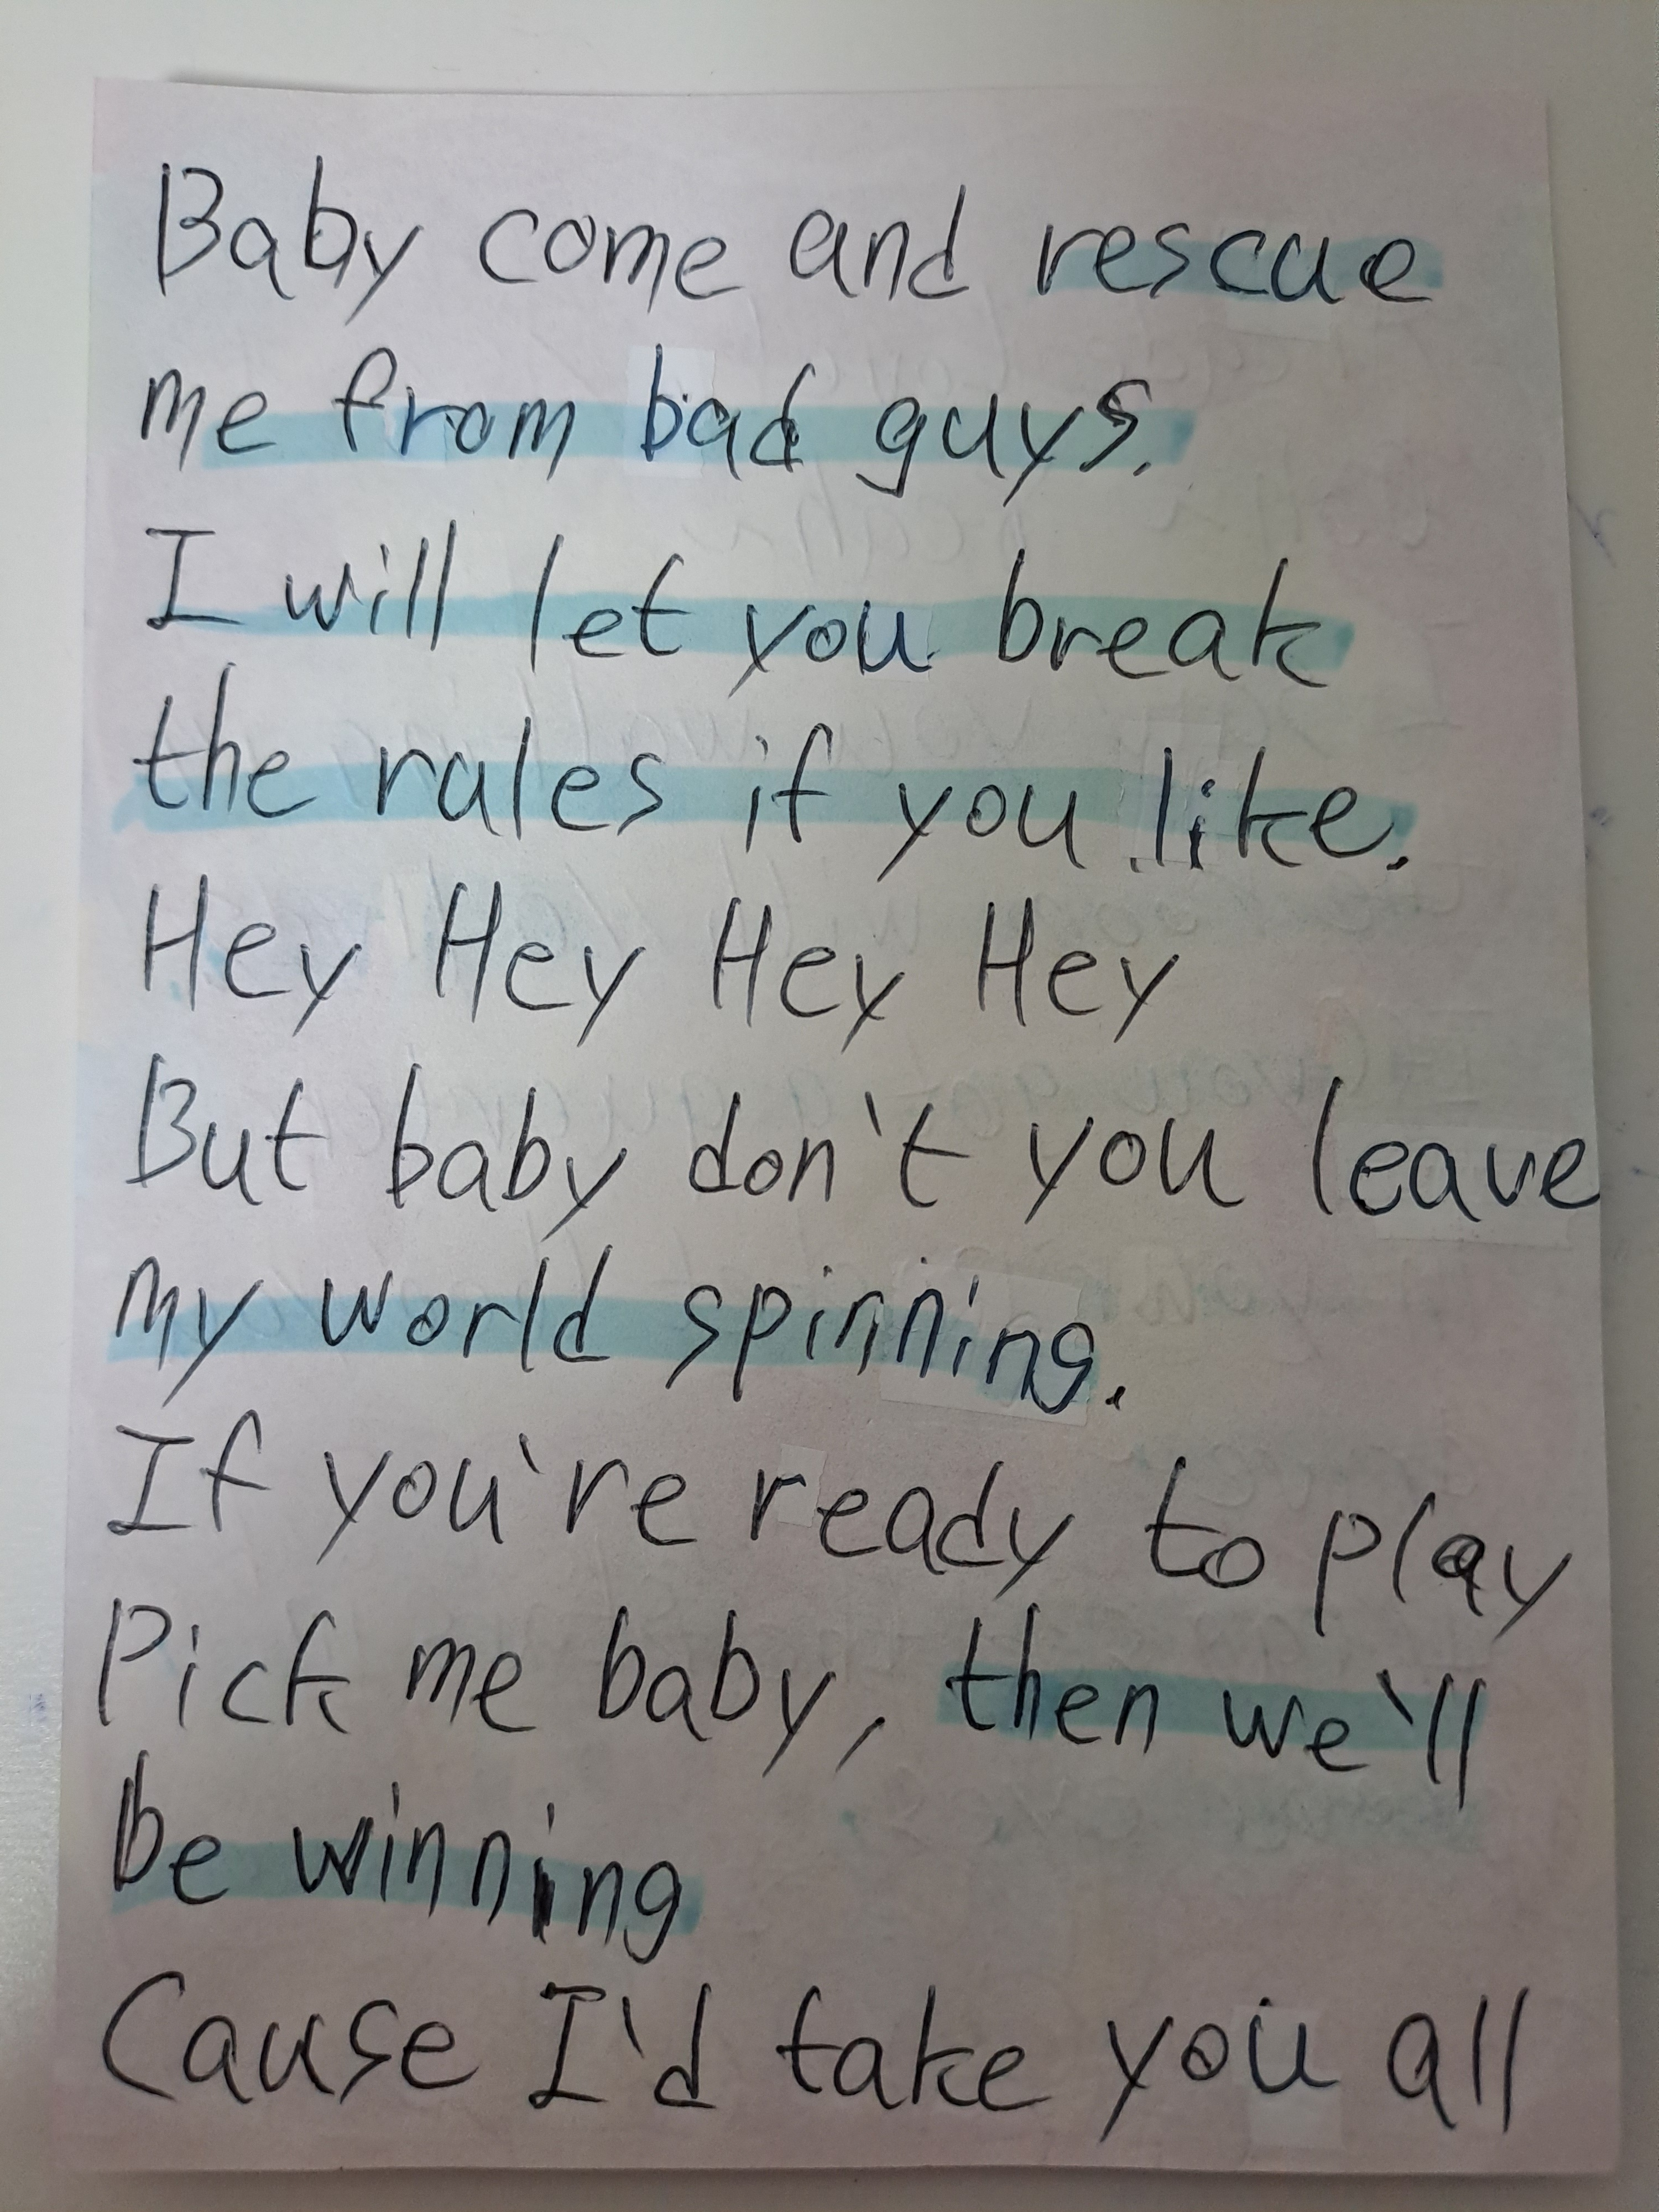 Baby come and rescue
me from bad guys.
I will let you break
the rules if you like.
Hey Hey Hey Hey
But baby don't you leave
my world spinning.
If you're ready to play
Pick me baby, then we'll
be winning
Cause I'd take you all